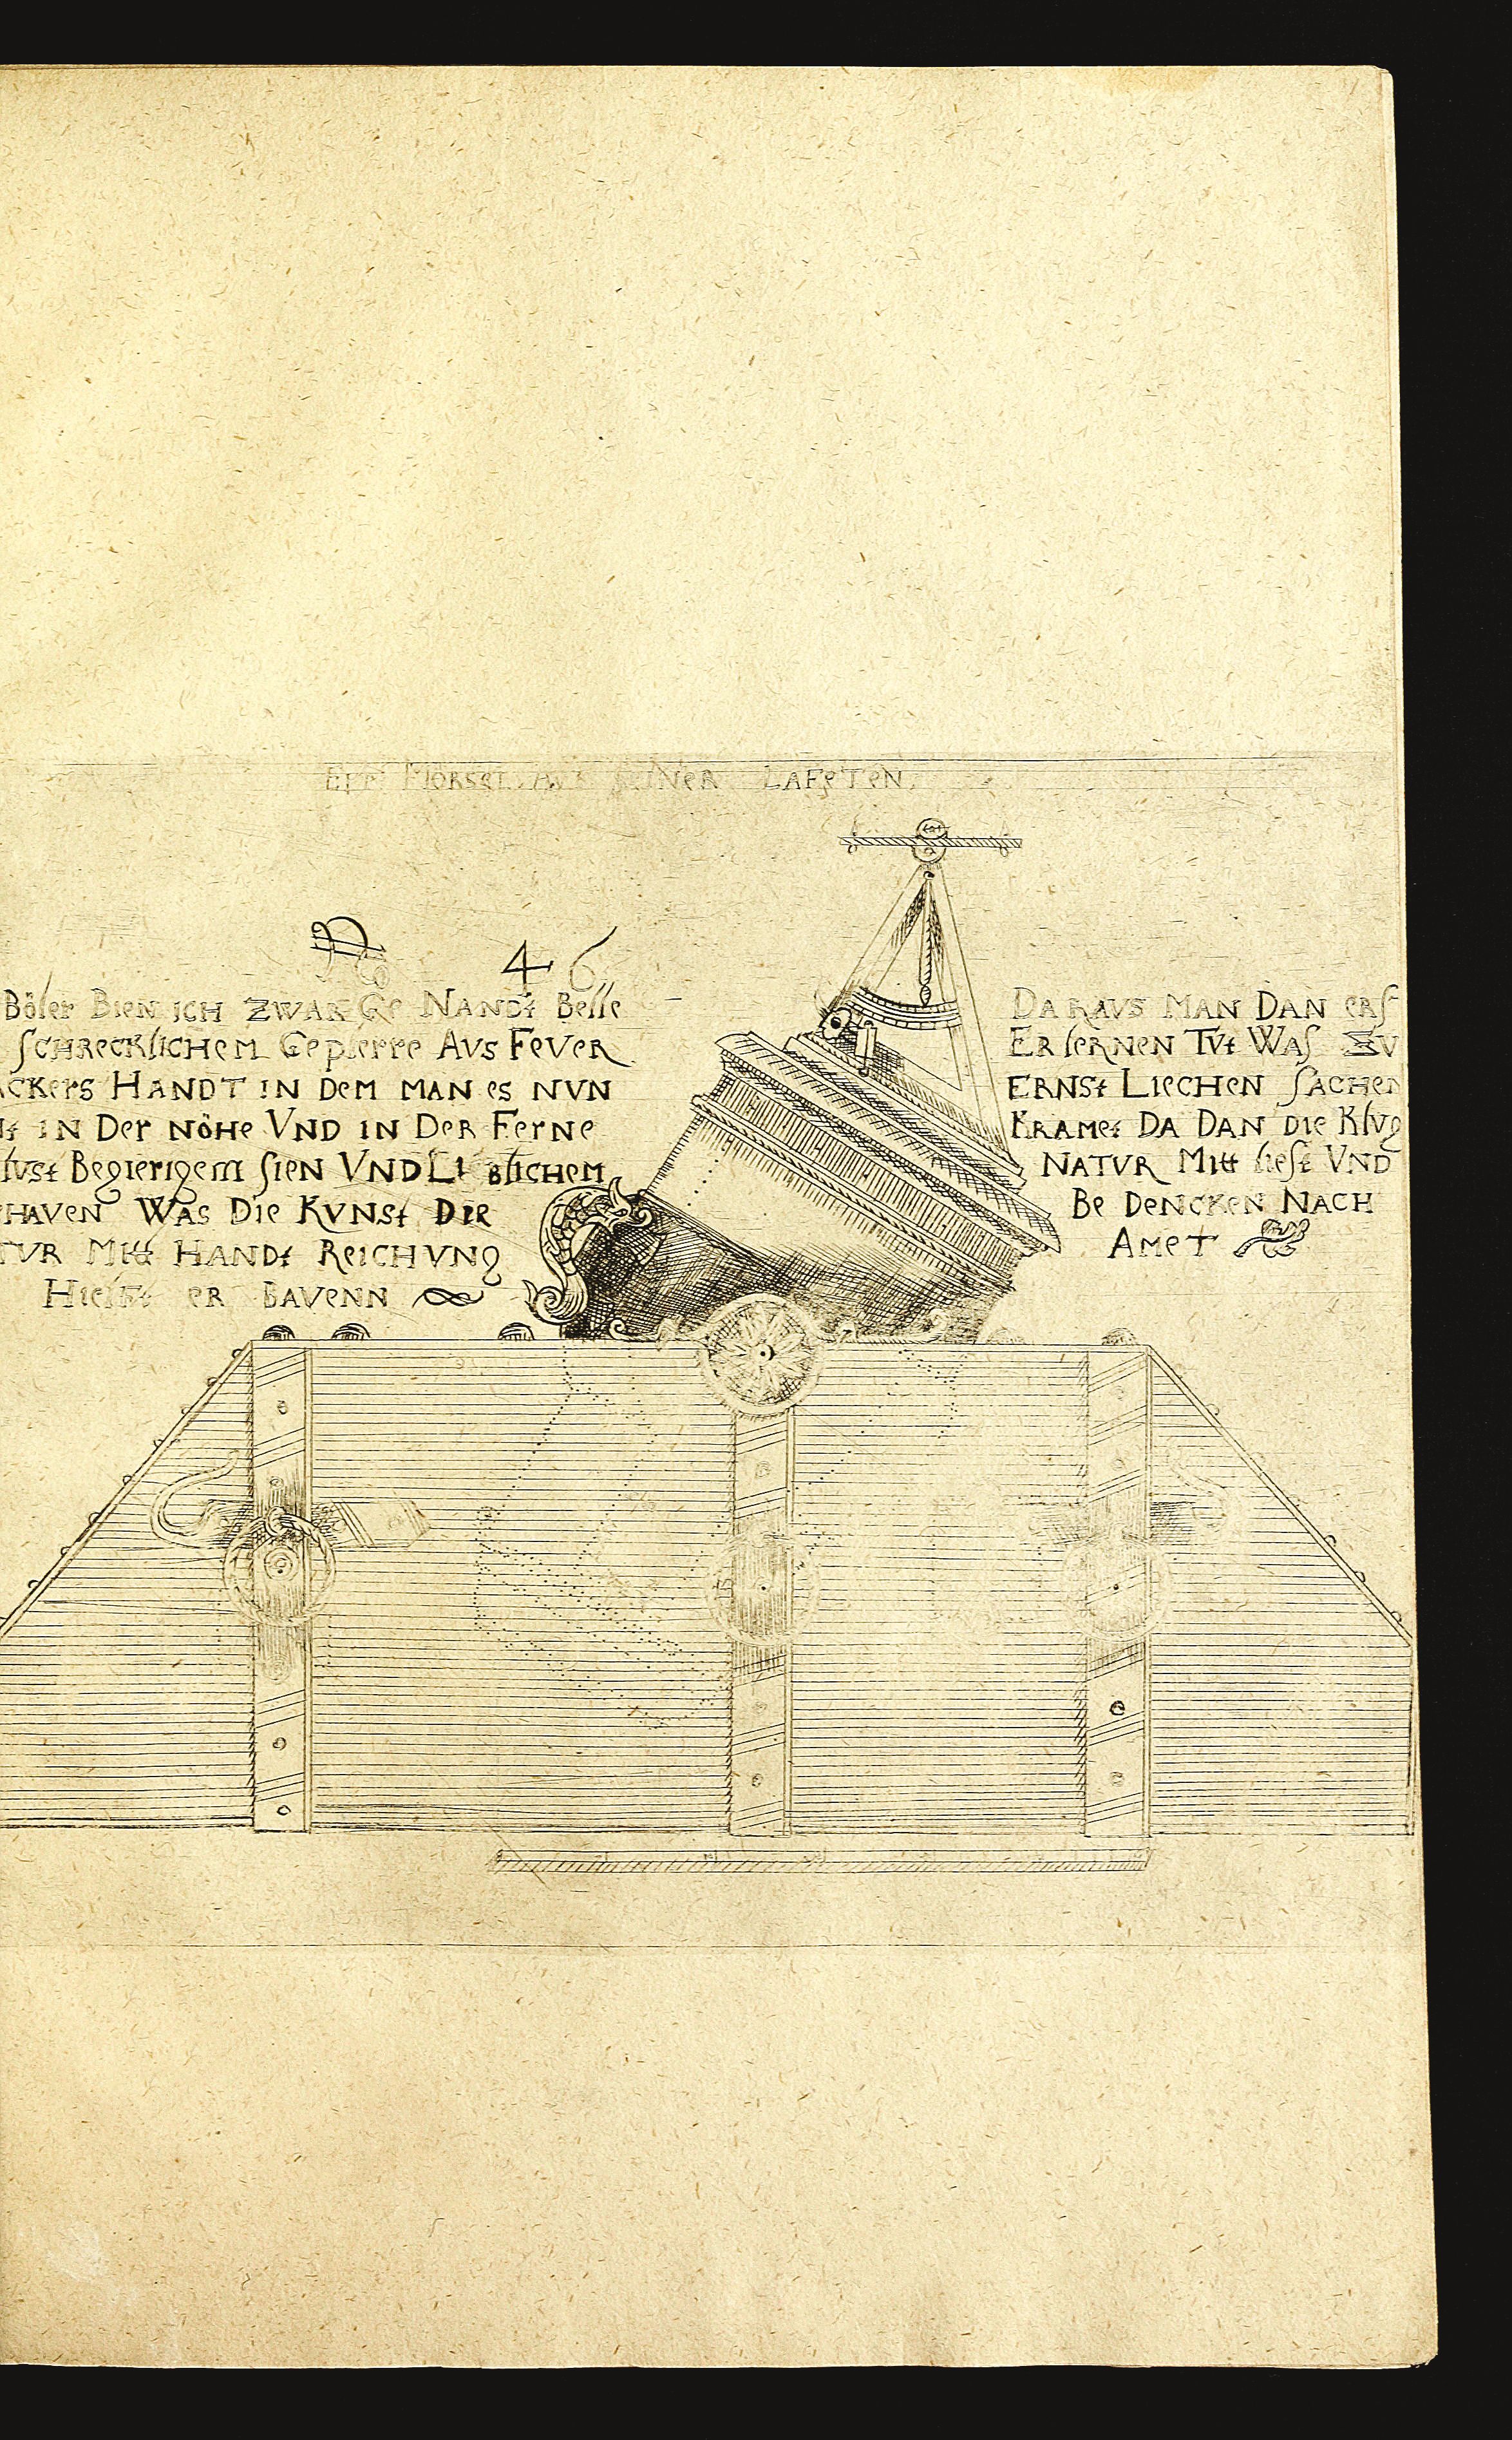 MORSEL AVF SEINER LAFETEN.
46
Böler Bien ich zwar Ge Nandt Belle
schrecklichem Geplerre Avs Fever
ckers Handt in dem man es nvn
in Der nöhe Vnd in Der Ferne
lust Begierigem sien Vnd Li blichem
haven Was Die Kvnst Der
tvr Mitt Handt Reichvng
er Bavenn
Daravs man Dan ers
Er lernen Tvt Was zv
ernst Liechen sachen
Kramet Da Dan die Klvg
natvr Mitt liest Vnd
Be dencken nach
Amet